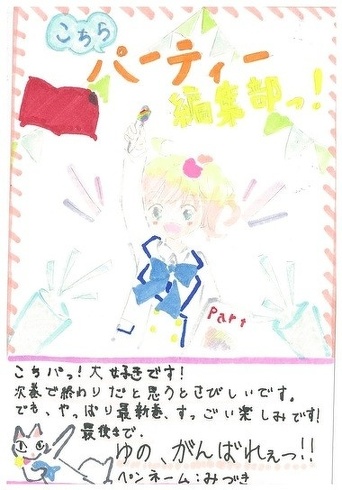 こちら
パーティー
編集部っ!
Part
こちパっ!大好きです!
次巻で終わりだと思うとさびしいです。
でも、やっぱり最新巻、すっごい楽しみです!
最後まで、
ゆの、がんばれぇっ!!
ペンネーム:みづき